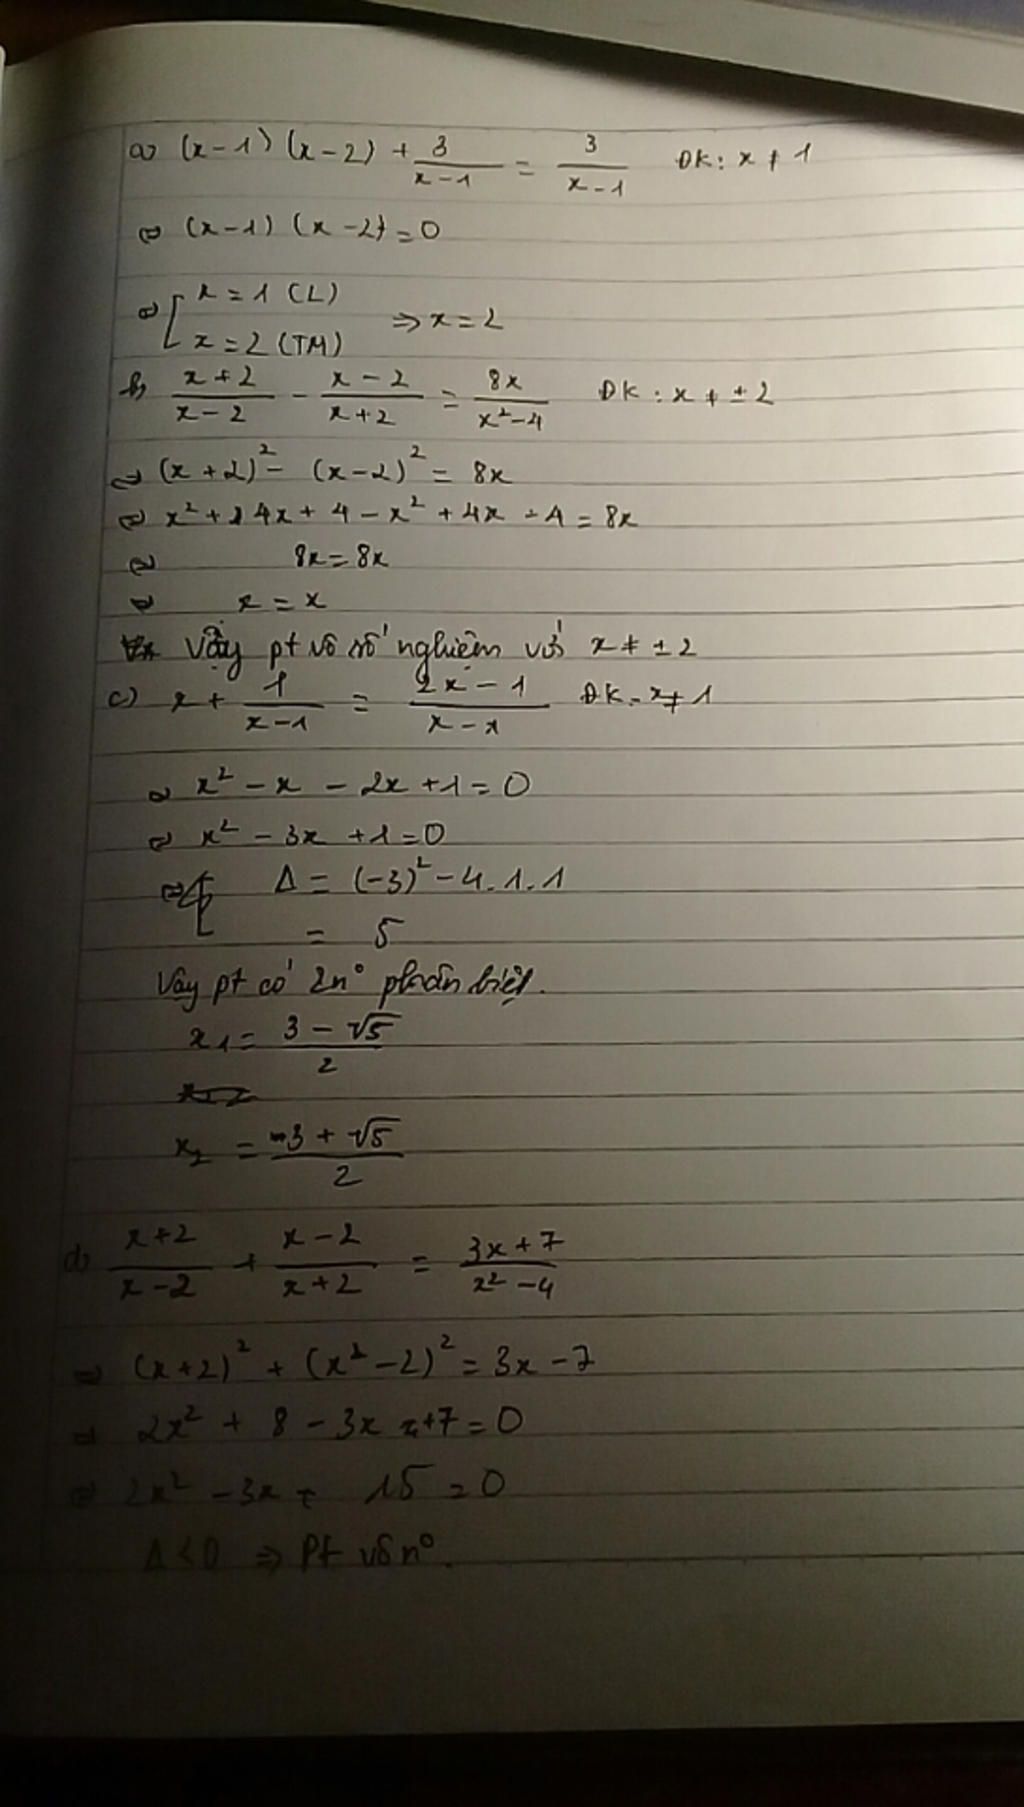 a) (x-1)(x-2) + 3/(x-1) = 3/(x-1) ĐK: x ≠ 1
⇔ (x-1)(x-2) = 0
⇔ [ x = 1 (L)
x = 2 (TM) ⇒ x = 2
b) (x+2)/(x-2) - (x-2)/(x+2) = 8x/(x²-4) ĐK: x ≠ ±2
⇔ (x+2)² - (x-2)² = 8x
⇔ x² + 4x + 4 - x² + 4x - 4 = 8x
⇔ 8x = 8x
⇔ x = x
Vậy pt vô số nghiệm với x ≠ ±2
c) x + 1/(x-1) = (2x-1)/(x-1) ĐK: x ≠ 1
⇔ x² - x - 2x + 1 = 0
⇔ x² - 3x + 1 = 0
⇔ Δ = (-3)² - 4.1.1
= 5
Vậy pt có 2n° phân biệt.
x₁ = (3 - √5)/2
x₂ = (-3 + √5)/2
d) (x+2)/(x-2) + (x-2)/(x+2) = (3x+7)/(x²-4)
⇔ (x+2)² + (x²-2)² = 3x - 7
⇔ 2x² + 8 - 3x + 7 = 0
⇔ 2x² - 3x + 15 = 0
Δ < 0 ⇒ Pt vô n°.